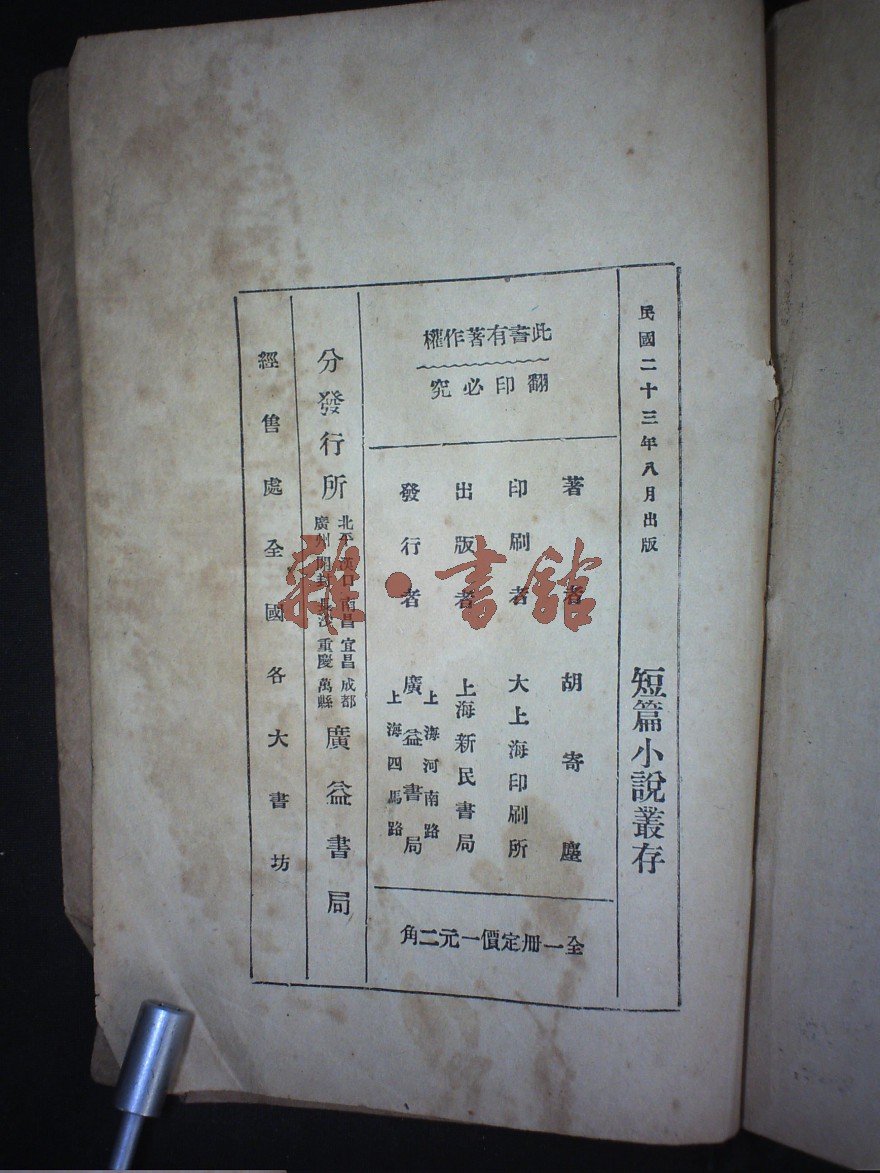 民國二十三年八月出版
短篇小說叢存
此書有著作權
翻印必究
著者 胡寄塵
印刷者 大上海印刷所
出版者 上海新民書局
發行者 上海河南路 廣益書局 上海四馬路
全一冊定價一元二角
分發行所 北平 漢口 南昌 宜昌 成都 廣州 開封 長沙 重慶 萬縣 廣益書局
經售處全國各大書坊
雜·書館